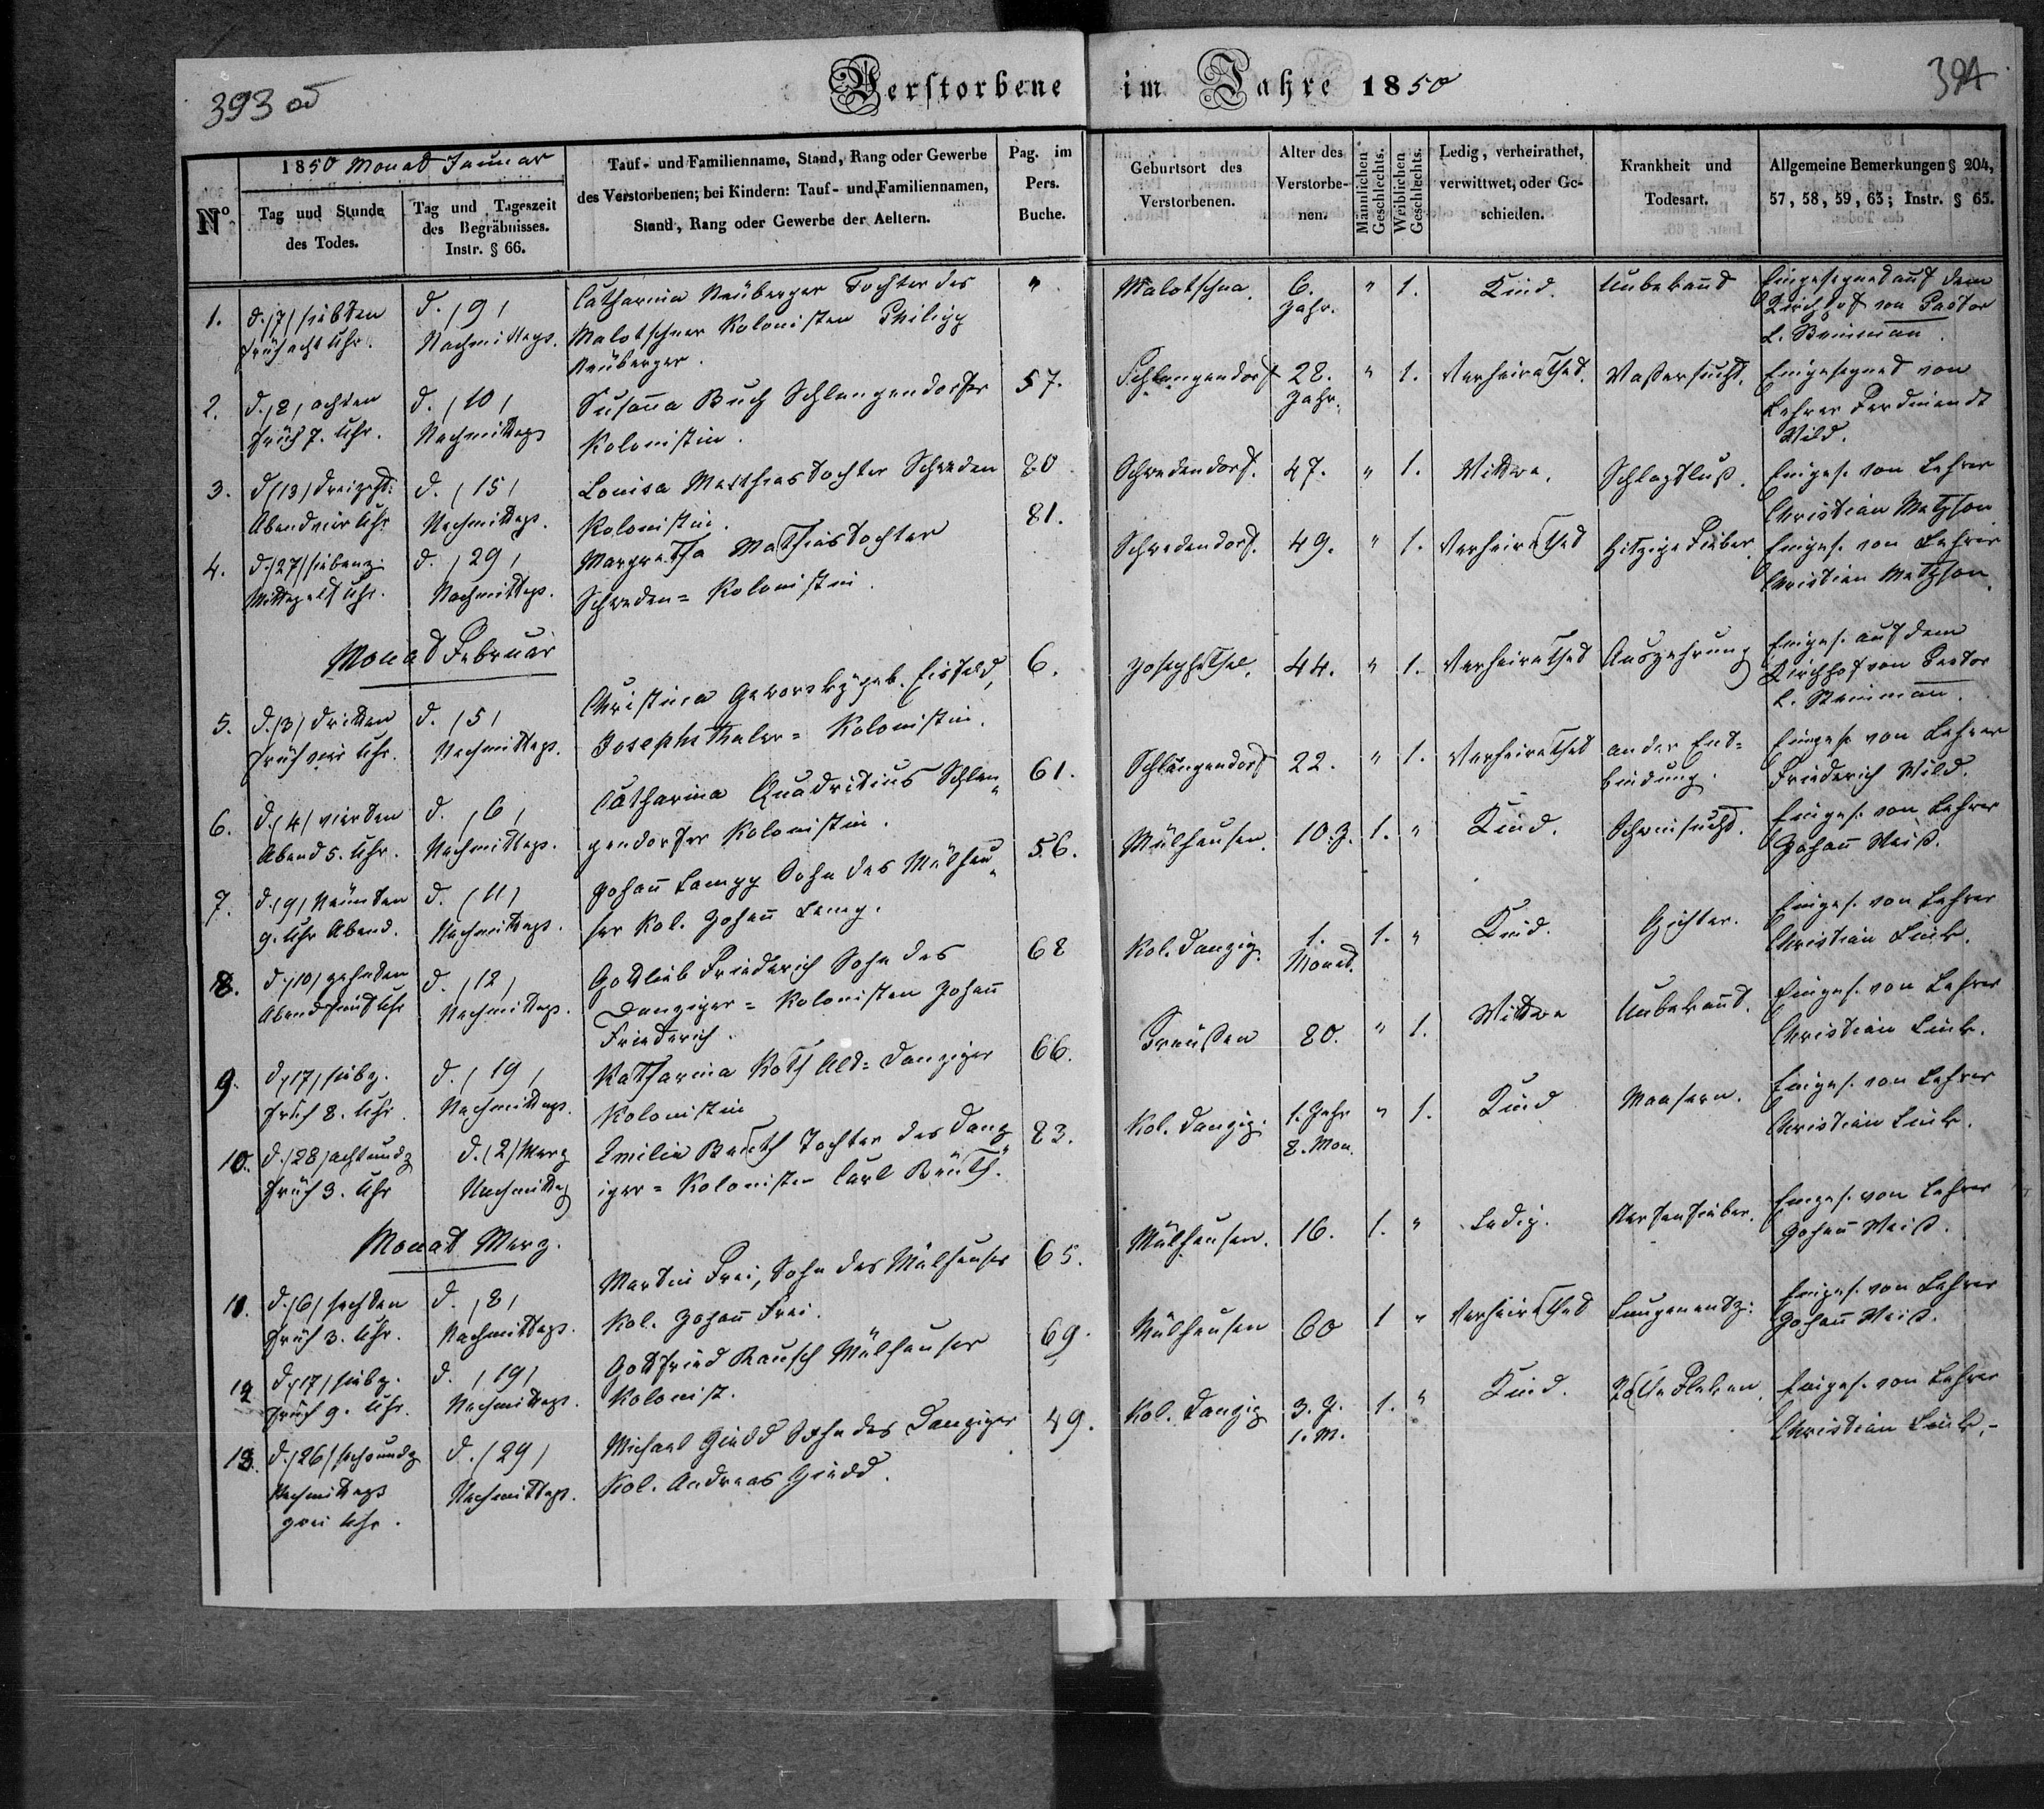 393 od
Verstorbene im Jahre 1850
394
No.
1850 Monat Januar
Tag und Stunde
des Todes.
Tag und Tageszeit
des Begräbnisses.
Instr. § 66.
Tauf- und Familienname, Stand, Rang oder Gewerbe
des Verstorbenen; bei Kindern: Tauf- und Familiennamen,
Stand, Rang oder Gewerbe der Aeltern.
Pag. im
Pers.
Buche.
Geburtsort des
Verstorbenen.
Alter des
Verstorbe-
nen.
Männlichen
Geschlechts.
Weiblichen
Geschlechts.
Ledig, verheirathet,
verwittwet, oder Ge-
schieden.
Krankheit und
Todesart.
Allgemeine Bemerkungen § 204,
57, 58, 59, 63; Instr. § 65.
1. d. /7/ siebten d. /9/ Catharina Neüberger Tochter des " Malotschna. 6. " 1. Kind. Unbekañt Eingesegnet auf dem
früh acht Uhr. Nachmittags. Malotschner Kolonisten Philipp Jahr. Kirchhof von Pastor
Neüberger.
2. d. /8/ achten d. /10/ Susaña Buch Schlangendorfer 57. Schlangendorf 28. " 1. Verheirathet. Waßersucht. Eingesegnet von
früh 7. Uhr. Nachmittags Kolonistin. Jahr. Lehrer Ferdinandt
Wild.
3. d /13/ dreizeht: d. /15/ Louisa Matthiastochter Schweden 80 Schwedendorf. 47. " 1. Wittwe. Schlagfluß. Einges. von Lehrer
Abend vier Uhr Nachmittags. Kolonistin. Christian Matzson
4. d. /27/ siebenz. d. /29/ Margretha Mathiastochter 81. Schwedendorf. 49. " 1. Verheirathet Hitzige Fieber Einges. von Lehrer
Mittags elf Uhr. Nachmittags. Schweden= Kolonistin. Christian Matzson.
Monat Februar
5. d. /3/ dritten d. /5/ Christina geb. Eisfeld, 6. Josephsthal. 44. " 1. Verheirathet Auszehrung Einges. auf dem
früh vier Uhr. Nachmittags. Josephsthaler= Kolonistin. Kirchhof von Pastor
6. d. /4/ vierten d. /6/ Catharina Quadritius Schlan„ 61. Schlangendorf 22. " 1. Verheirathet an der Ent= Einges. von Lehrer
Abend 5. Uhr. Nachmittags. gendorfer Kolonistin. bindung. Friederich Wild.
7. d. /9/ Neünten d. /11/ Johañ Lampp Sohn des Mülheu„ 56. Mülhausen. 10. J. 1. " Kind. Schwinsucht. Einges. von Lehrer
9. Uhr Abend. Nachmittags. ser Kol. Johañ Lamp. Johañ Weiß.
8. d. /10/ zehnten d. /12/ Gottlieb Friederich Sohn des 68 Kol. Danzig. 1. 1. " Kind. Gichter. Einges. von Lehrer
Abend fünf Uhr Nachmittags. Danziger= Kolonisten Johañ Monat. Christian Link.
Friederich.
9. d. /17/ siebz. d. /19/ Katharina Roth Alt= Danziger 66. Preüßen 80. " 1. Wittwe Unbekañt. Einges. von Lehrer
früh 8. Uhr. Nachmittags. Kolonistin Christian Link.
10. d. /28/ achtundz d. /2/ Merz Emilia Beuth Tochter des Danz„ 83. Kol. Danzig. 1. Jahr " 1. Kind Maasern. Einges. von Lehrer
früh 3. Uhr Nachmittag iger= Kolonisten Carl Beuth. 8. Mon. Christian Link.
Monat Merz.
11. d. /6/ sechsten d. /8/ Martin Frei, Sohn des Mülheuser 65. Mülhausen. 16. 1. " Ledig. Nervenfieber. Einges. von Lehrer
früh 3. Uhr. Nachmittags. Kol. Johañ Frei. Johañ Weiß.
12 d. /17/ siebz. d. /19/ Gottfried Rausch Mülheuser 69. Mülhausen 60 1 " Verheirathet Lungenentz: Einges. von Lehrer
früh 9. Uhr. Nachmittags. Kolonist. Johañ Weiß.
13. d. /26/ sechsundz d. /29/ Michael Giedd Sohn des Danziger 49. Kol. Danzig 3. J. 1. " Kind. Fleken Einges. von Lehrer
Nachmittags Nachmittags. Kol. Andreas Giedd. 1. M. Christian Link.-
zwei Uhr.